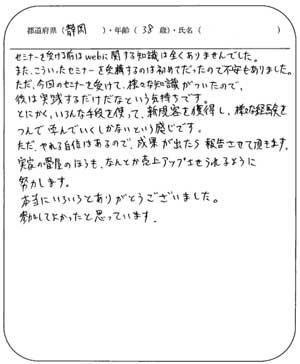 都道府県（静岡）・年齢（38歳）・氏名（　　　）
セミナーを受ける前はwebに関する知識は全くありませんでした。
また、こういったセミナーを受講するのは初めてだったので不安もありました。
ただ、今回のセミナーを受けて、様々な知識がついたので、
後は実践するだけだなという気持ちです。
とにかく、いろんな手段を使って、新規客を獲得し、様々な経験を
つんで学んでいくしかないという感じです。
ただ、やれる自信はあるので、成果が出たら報告させて頂きます。
実店の
のほうも、なんとか売上アップさせられるように
努力します。
本当にいろいろとありがとうございました。
参加してよかったと思っています。